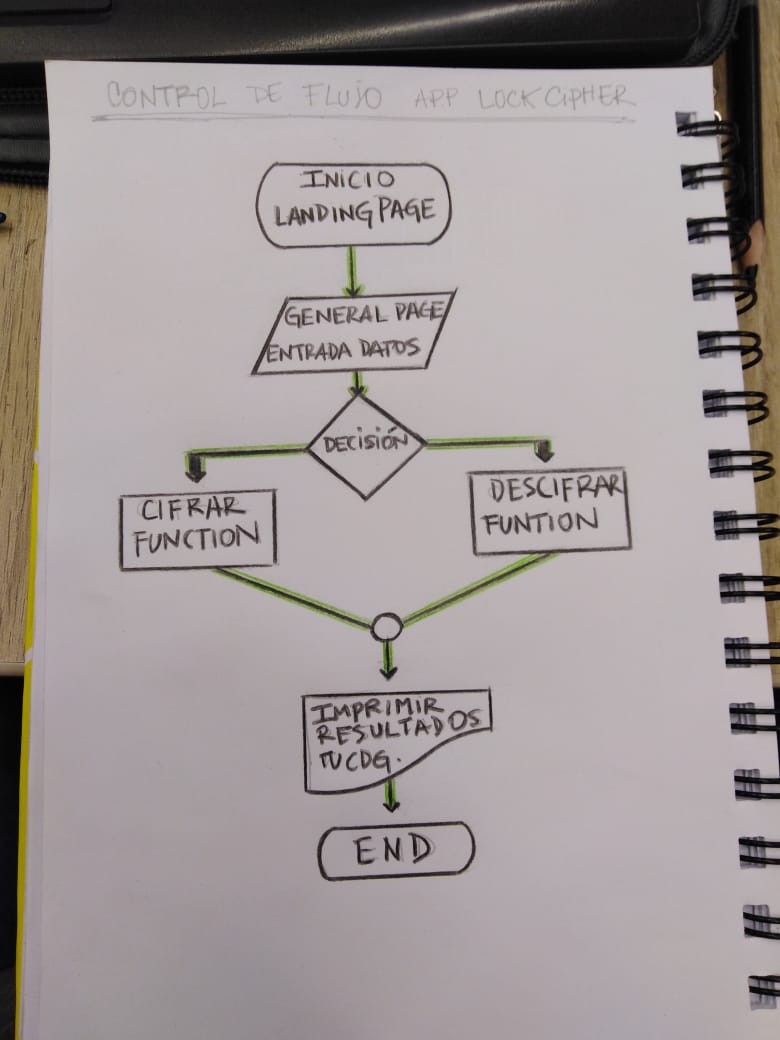 CONTROL DE FLUJO APP LOCK CIPHER
INICIO
LANDING PAGE
GENERAL PAGE
ENTRADA DATOS
DECISIÓN
CIFRAR
FUNCTION
DESCIFRAR
FUNTION
IMPRIMIR
RESULTADOS
TU CDG.
END